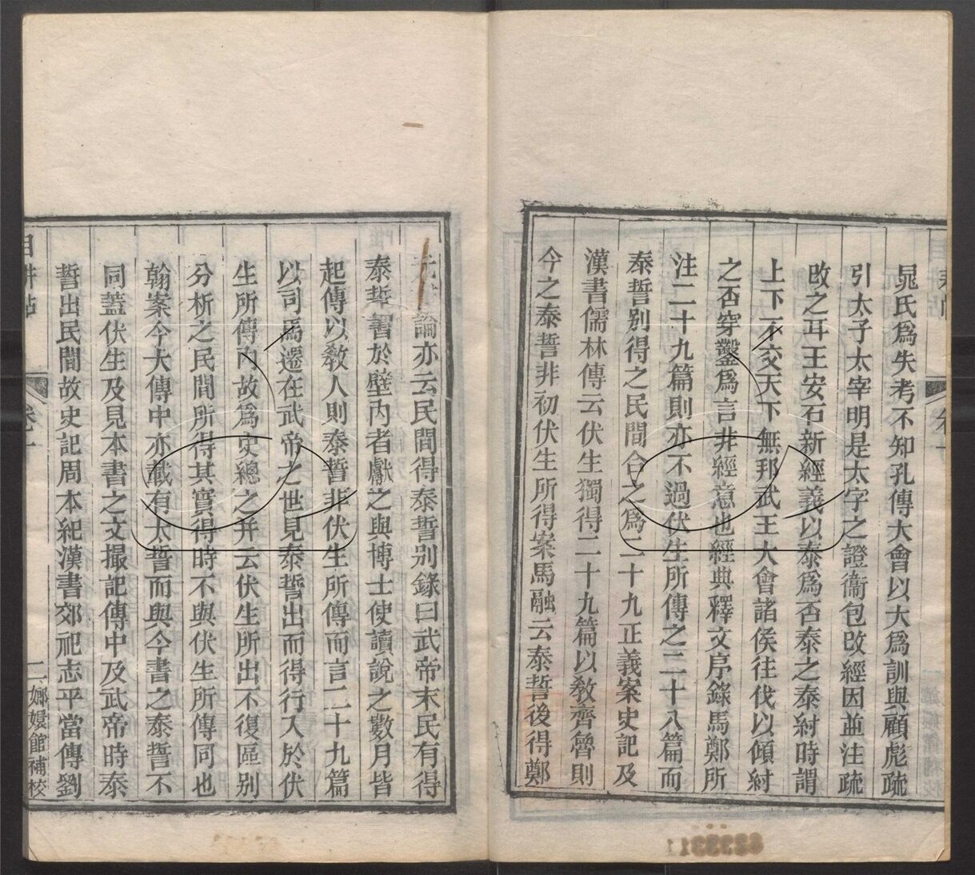 晁氏爲失考不知孔傳大會以大爲訓與顧彪疏
引太子太宰明是太字之證衞包改經因並注疏
改之耳王安石新經義以泰爲否泰之泰紂時謂
上下不交天下無邦武王大會諸侯往伐以傾紂
之否穿鑿爲言非經意也經典釋文序錄馬鄭所
注二十九篇則亦不過伏生所傳之二十八篇而
泰誓别得之民間合之爲二十九正義案史記及
漢書儒林傳云伏生獨得二十九篇以教齊魯則
今之泰誓非初伏生所得案馬融云泰誓後得鄭
論亦云民間得泰誓别錄曰武帝末民有得
泰誓書於壁内者獻之與博士使讀說之數月皆
起傳以教人則泰誓非伏生所傳而言二十九篇
以司馬遷在武帝之世見泰誓出而得行入於伏
生所傳内故爲史總之并云伏生所出不復區别
分析之民間所得其實得時不與伏生所傳同也
翰案今大傳中亦載有太誓而與今書之泰誓不
同蓋伏生及見本書之文撮記傳中及武帝時泰
誓出民間故史記周本紀漢書郊祀志平當傳劉
目耕帖
卷十
二
嫏嬛館補校